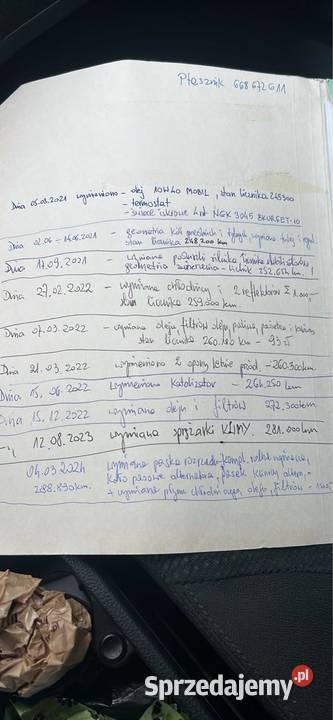 Ptasznik 668 672 611
Dnia 05.03.2021 wymieniono - olej 10W40 MOBIL, stan licznika 245300
- termostat
- świece iskrowe 4szt NGK 3045
Dnia 02.06 ÷ 14.06.2021 - geometria kół przednich i tylnych wymiana tulei i
stan licznika 248.200 km
Dnia 17.09.2021 - wymiana poduszki silnika, łącznika stabilizatora
geometria zawieszenia - licznik 252.
Dnia 27.02.2022 - wymiana chłodnicy i 2 reflektorów
stan licznika 259.000 km.
Dnia 07.03.2022 - wymiana oleju, filtrów oleju, paliwa, powietrza i kabiny
stan licznika 260.
Dnia 21.03.2022 wymieniono 2 opony letnie przód. - 260.300km.
Dnia 15.06.2022 wymieniono katalizator - 264.250 km
Dnia 15.12.2022 wymiana oleju i filtrów 272.300km
12.08.2023 wymiana sprężarki KLIMY. 281.000km
04.03.2024 wymiana paska rozrządu kompl,
288.830km. koło pasowe alternatora, pasek klinowy altern,
+ wymiana płynu chłodniczego, oleju, filtrów
Sprzedajemy.pl